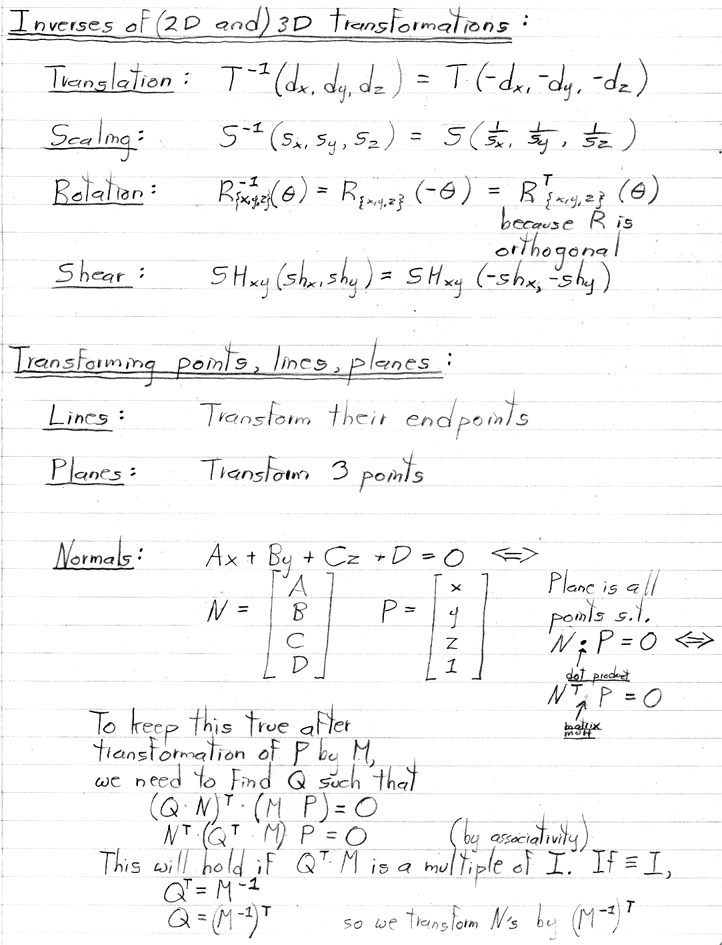 Inverses of (2D and) 3D transformations :
Translation : T⁻¹(dx, dy, dz) = T(-dx, -dy, -dz)
Scaling : S⁻¹(sx, sy, sz) = S(1/sx, 1/sy, 1/sz)
Rotation : R⁻¹{x,y,z}(θ) = R{x,y,z}(-θ) = Rᵀ{x,y,z}(θ)
because R is
orthogonal
Shear : SHxy(shx, shy) = SHxy(-shx, -shy)
Transforming points, lines, planes :
Lines : Transform their endpoints
Planes : Transform 3 points
Normals : Ax + By + Cz + D = 0 <=>
N = [A B C D] P = [x y z 1]
Plane is all
points s.t.
N • P = 0 <=>
dot product
Nᵀ P = 0
matrix
mult
To keep this true after
transformation of P by M,
we need to find Q such that
(Q · N)ᵀ · (M P) = 0
Nᵀ · (Qᵀ · M) P = 0 (by associativity)
This will hold if Qᵀ · M is a multiple of I. If ≡ I,
Qᵀ = M⁻¹
Q = (M⁻¹)ᵀ so we transform N's by (M⁻¹)ᵀ